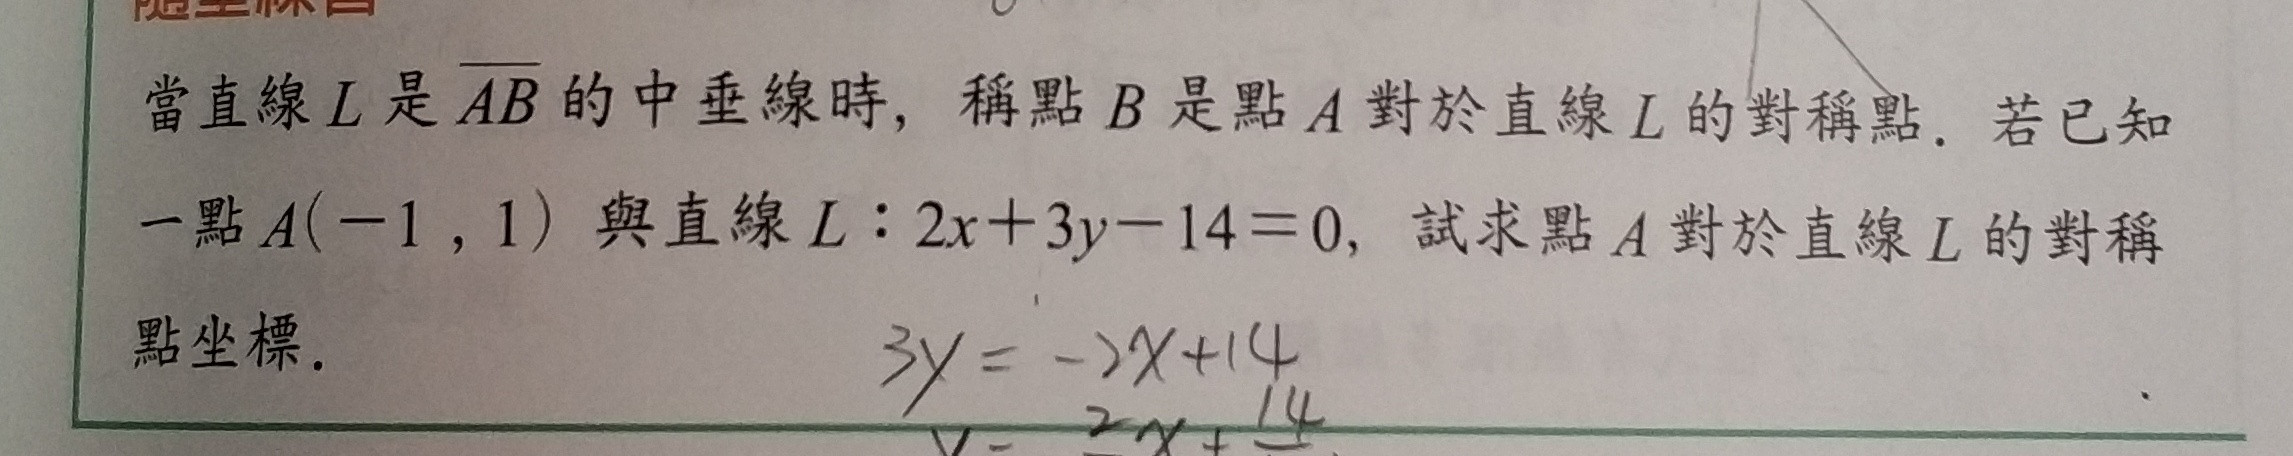 隨堂練習
當直線 L 是 AB 的中垂線時, 稱點 B 是點 A 對於直線 L 的對稱點. 若已知
一點 A(-1 , 1) 與直線 L：2x+3y-14=0, 試求點 A 對於直線 L 的對稱
點坐標.
3y = -2x+14
y = 2x + 14